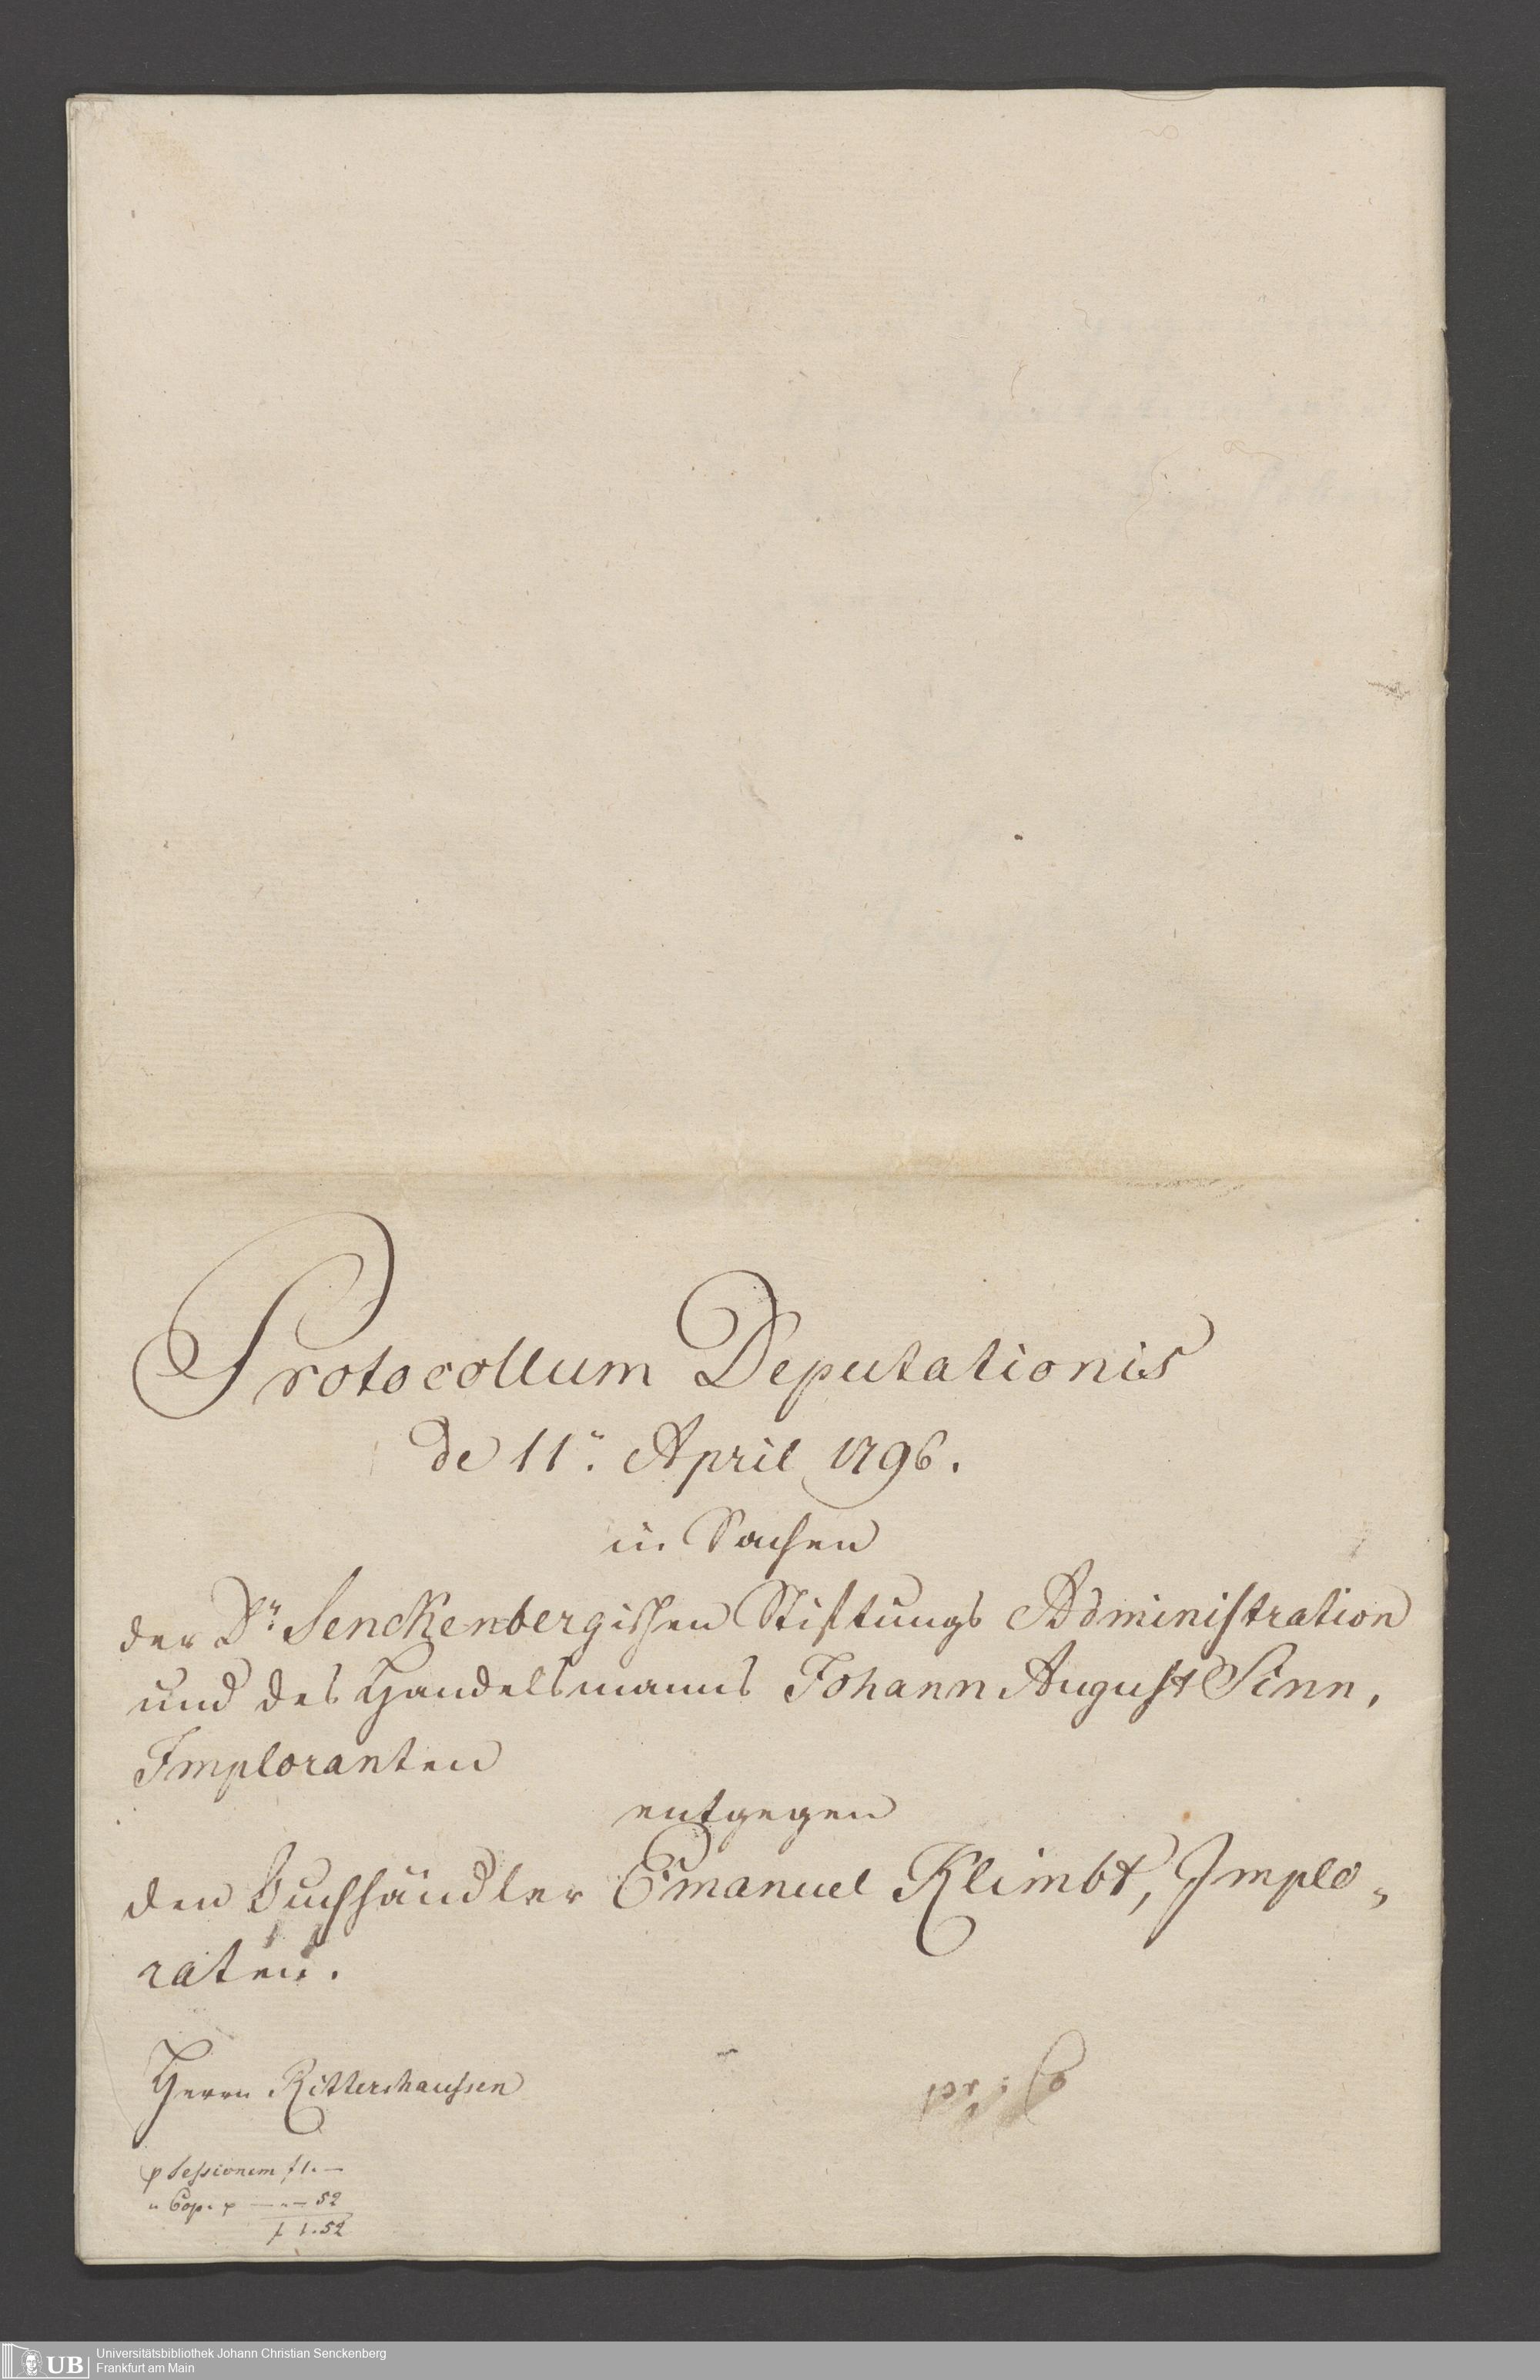 Protocollum Deputationis
de 11ⁿ. April 1796.
in Sachen
der Dr. Senckenbergischen Stiftungs Administration
und des Handelsmanns Johann August Sinn,
Imploranten
entgegen
den Buchhändler Emanuel Klimbt, Implo„
raten.
Herrn Rittershaussen
p Sessionem f 1. —
" Cop. p — „ — 52
f 1.52
UB
Universitätsbibliothek Johann Christian Senckenberg
Frankfurt am Main